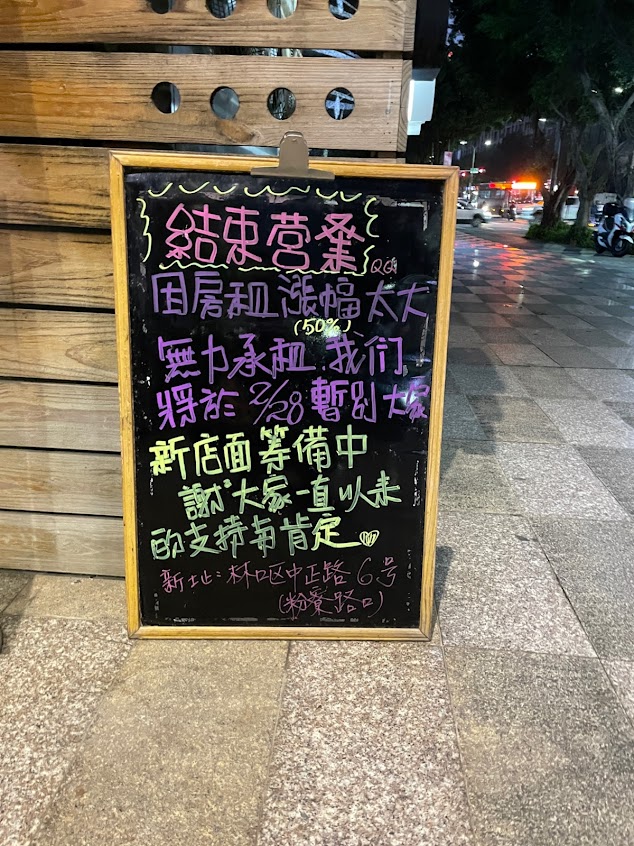 結束营業 QQ
因房租漲幅太大
(50%)
無力承租.我们
將於 2/28 暫別大家
新店面等備中
謝謝大家一直以來
的支持与肯定
新址:林口区中正路 6号
(粉寮路口)